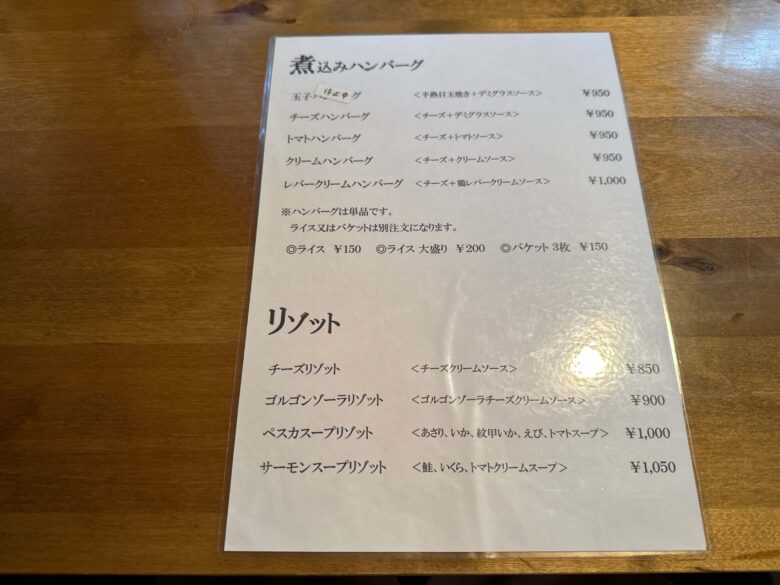 煮込みハンバーグ
玉子ハ 休止中 グ ＜半熟目玉焼き＋デミグラスソース＞ ￥950
チーズハンバーグ ＜チーズ＋デミグラスソース＞ ￥950
トマトハンバーグ ＜チーズ＋トマトソース＞ ￥950
クリームハンバーグ ＜チーズ＋クリームソース＞ ￥950
レバークリームハンバーグ ＜チーズ＋鶏レバークリームソース＞ ￥1,000
※ハンバーグは単品です。
ライス又はバケットは別注文になります。
◎ライス ￥150 ◎ライス 大盛り ￥200 ◎バケット 3枚 ￥150
リゾット
チーズリゾット ＜チーズクリームソース＞ ￥850
ゴルゴンゾーラリゾット ＜ゴルゴンゾーラチーズクリームソース＞ ￥900
ペスカスープリゾット ＜あさり、いか、紋甲いか、えび、トマトスープ＞ ￥1,000
サーモンスープリゾット ＜鮭、いくら、トマトクリームスープ＞ ￥1,050